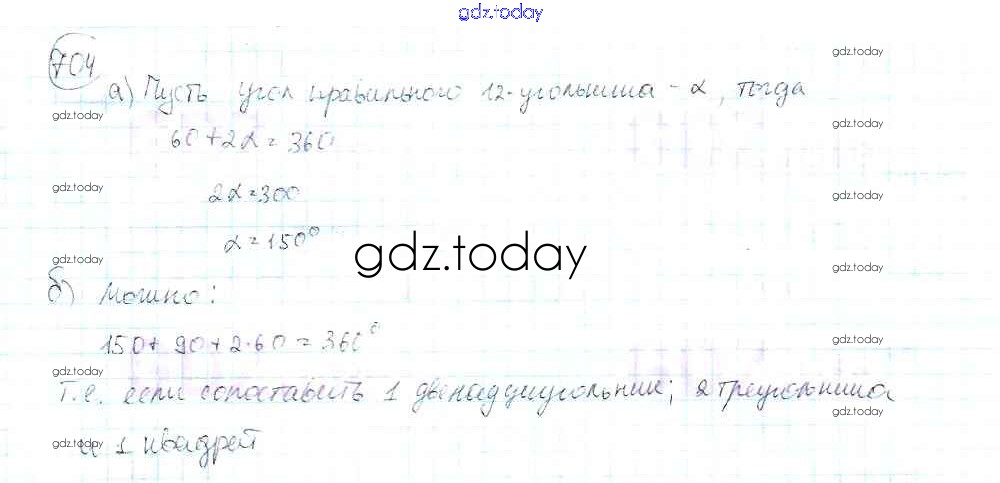 gdz.today
704
а) Пусть угол правильного 12-угольника - α, тогда
60+2α=360
2α=300
α=150°
б) можно:
150+90+2·60=360°
т.е. если сопоставить 1 двенадциугольник; 2 треугольника
и 1 квадрат
gdz.today
gdz.today
gdz.today
gdz.today
gdz.today
gdz.today
gdz.today
gdz.today
gdz.today
gdz.today
gdz.today
gdz.today
gdz.today